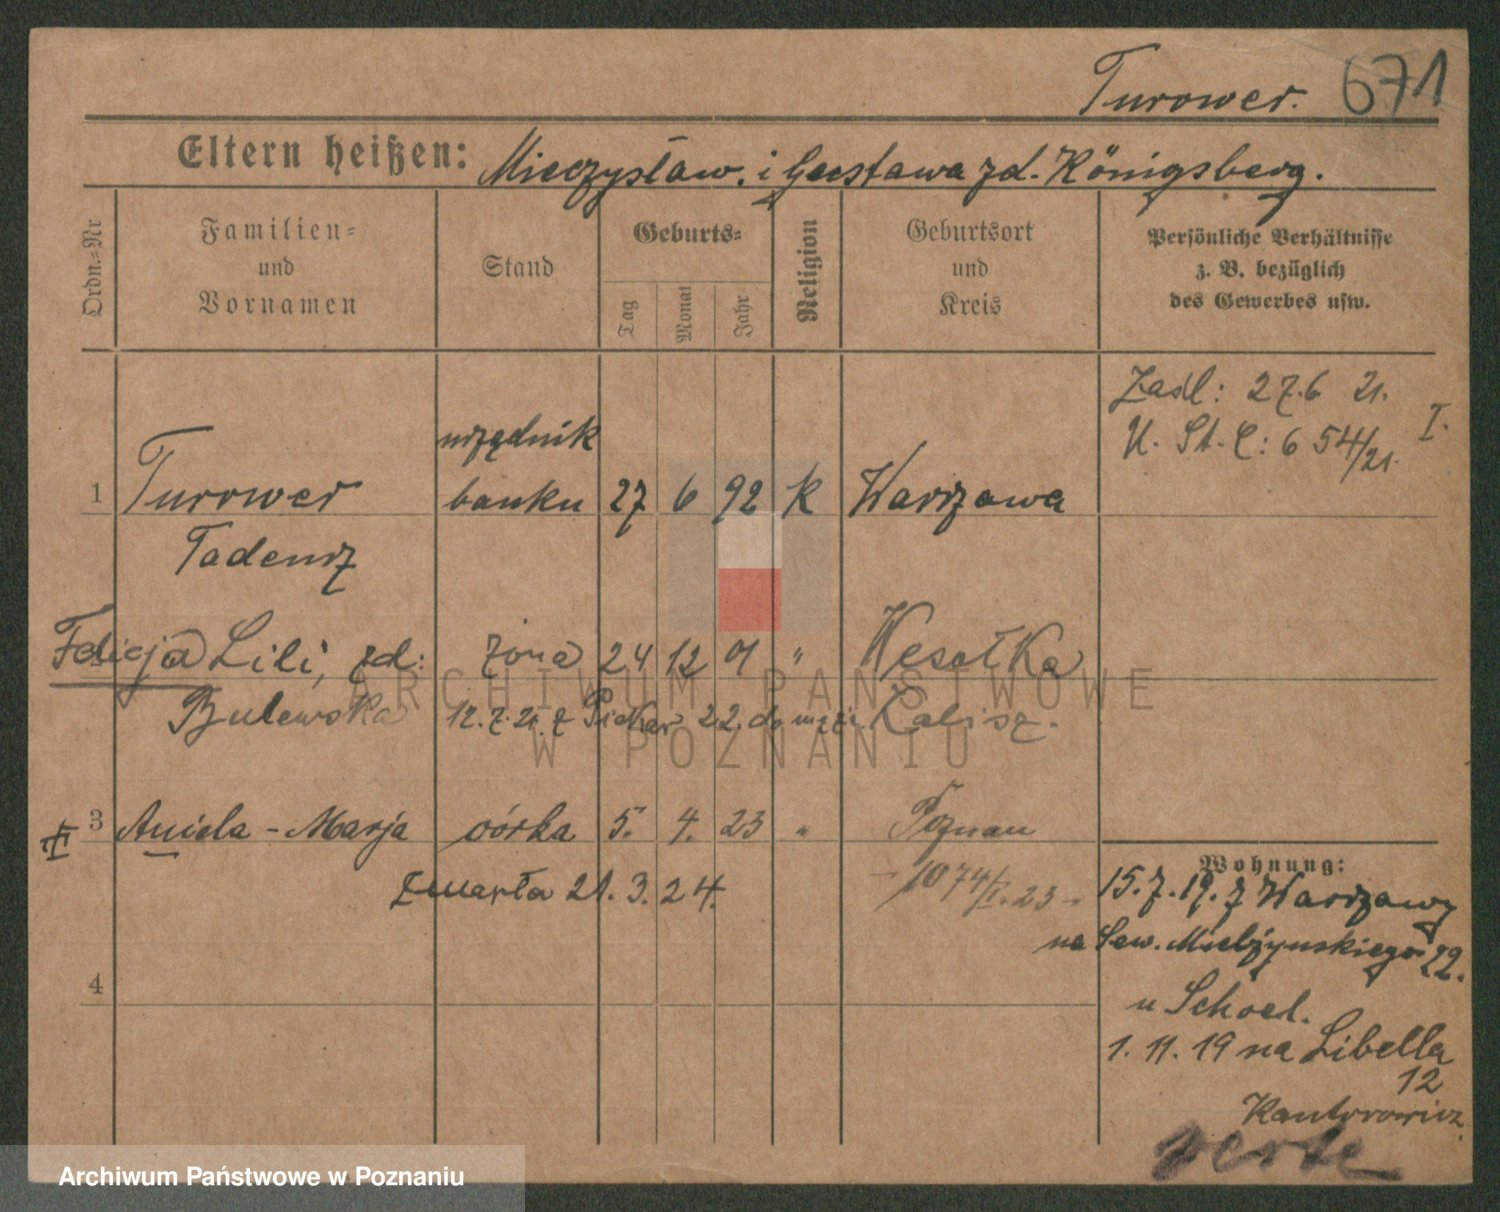 Turower. 671
Eltern heißen: Mieczysław. i Gustawa zd. Königsberg.
Ordn.-Nr
Familien- und Vornamen
Stand
Geburts-
Tag
Monat
Jahr
Religion
Geburtsort und Kreis
Persönliche Verhältnisse
z. B. bezüglich
des Gewerbes usw.
Zasl: 27.6 21.
U. St. C: 654/21. I.
urzędnik
1 Turower banku 27 6 92 k Warszawa
Tadeusz
Felicja Lili, zd: żona 24 12 01 " Wesołka
Bulewska 12.7.21. z 22. do męża Kalisz.
II 3 Aniela - Marja córka 5. 4. 23 " Poznan
zmarła 21. 3. 24. - 1074/I. 23 -
Wohnung:
15.7.19. z Warszawy
na Sew. Mielżynskiego 22.
4
u Schoel.
1. 11. 19 na Libelta
12
Kantorowicz.
verte
ARCHIWUM PAŃSTWOWE
W POZNANIU
Archiwum Państwowe w Poznaniu